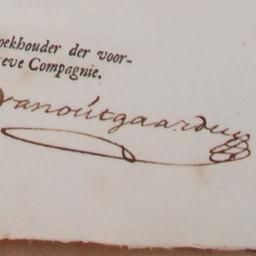 oekhouder der voor-
eve Compagnie.
vanoútgaarden